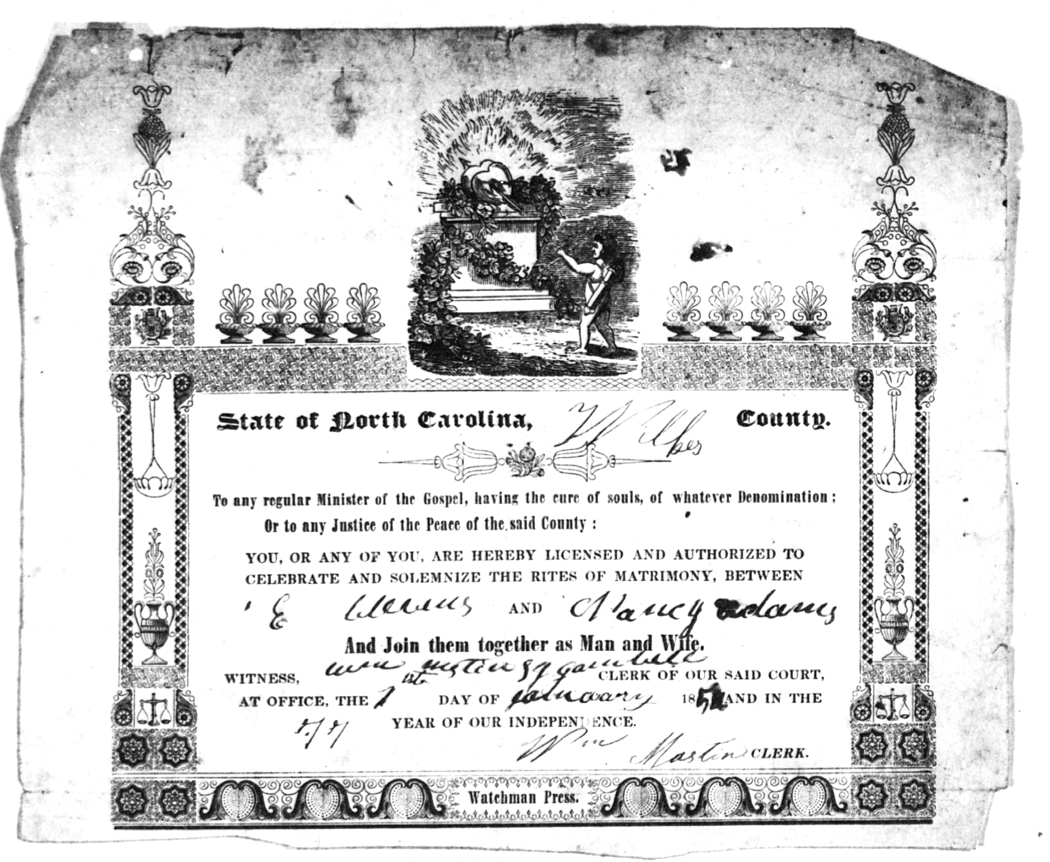 State of North Carolina, Wilkes County.
To any regular Minister of the Gospel, having the cure of souls, of whatever Denomination:
Or to any Justice of the Peace of the said County:
YOU, OR ANY OF YOU, ARE HEREBY LICENSED AND AUTHORIZED TO
CELEBRATE AND SOLEMNIZE THE RITES OF MATRIMONY, BETWEEN
E AND Nancy adams
And Join them together as Man and Wife.
WITNESS, CLERK OF OUR SAID COURT,
AT OFFICE, THE 1st DAY OF January 185 AND IN THE
YEAR OF OUR INDEPENDENCE.
Wm Martin CLERK.
Watchman Press.